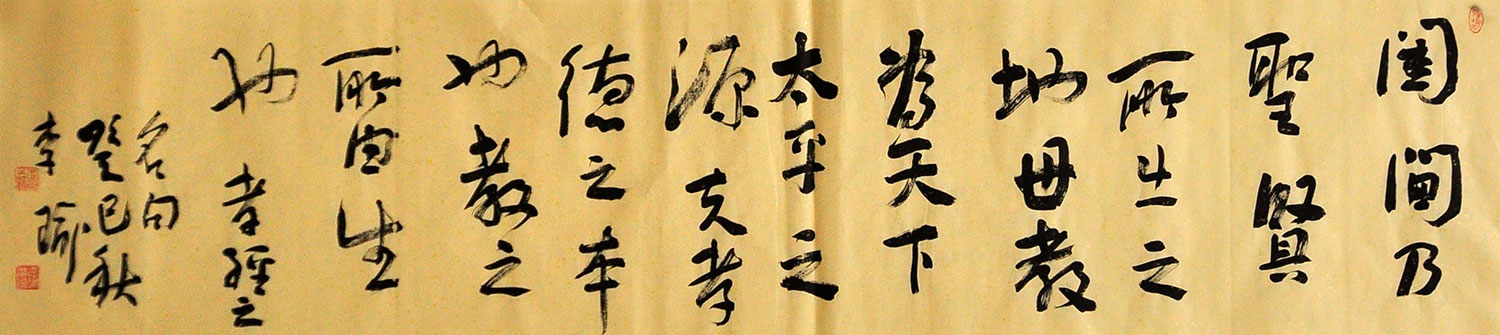 閨閫乃
聖賢
所出之
地母教
為天下
太平之
源夫孝
德之本
也教之
所由生
也孝經之
名句
癸巳秋
李瑜